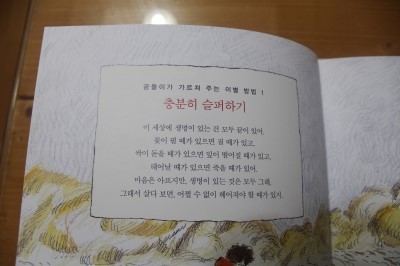 곰돌이가 가르쳐 주는 이별 방법 1
충분히 슬퍼하기
이 세상에 생명이 있는 건 모두 끝이 있어.
꽃이 필 때가 있으면 질 때가 있고,
싹이 돋을 때가 있으면 잎이 떨어질 때가 있고,
태어날 때가 있으면 죽을 때가 있어.
마음은 아프지만, 생명이 있는 것은 모두 그래.
그래서 살다 보면, 어쩔 수 없이 헤어져야 할 때가 있지.